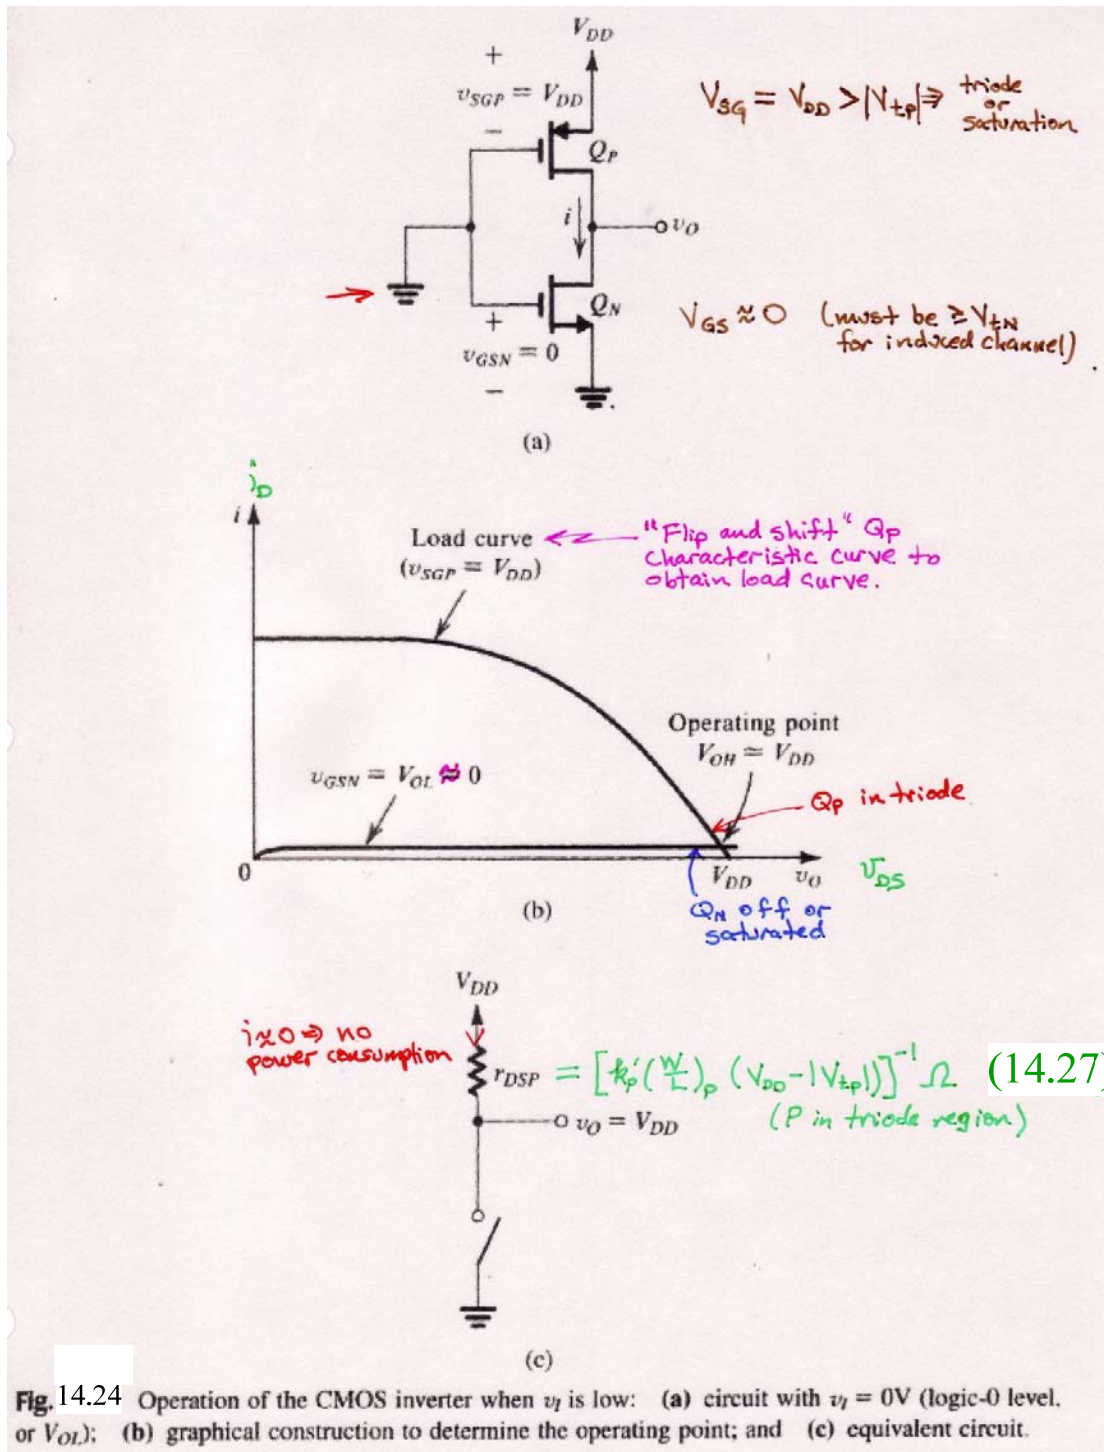 V_DD
+
v_SGP = V_DD
−
Q_P
V_SG = V_DD > |V_tp| ⇒ triode
or
saturation
i
v_O
Q_N
+
v_GSN = 0
−
V_GS ≈ 0 (must be ≥ V_tN
for induced channel)
(a)
i_D
i
Load curve
(v_SGP = V_DD)
"Flip and shift" Q_P
characteristic curve to
obtain load curve.
Operating point
V_OH ≃ V_DD
v_GSN = V_OL ≈ 0
Q_P in triode
0
V_DD
v_O
v_DS
Q_N off or
saturated
(b)
V_DD
i≈0 ⇒ no
power consumption
r_DSP = [k_p'(W/L)_p (V_DD-|V_tp|)]^-1 Ω (14.27)
(P in triode region)
v_O = V_DD
(c)
Fig. 14.24 Operation of the CMOS inverter when v_I is low: (a) circuit with v_I = 0V (logic-0 level,
or V_OL); (b) graphical construction to determine the operating point; and (c) equivalent circuit.